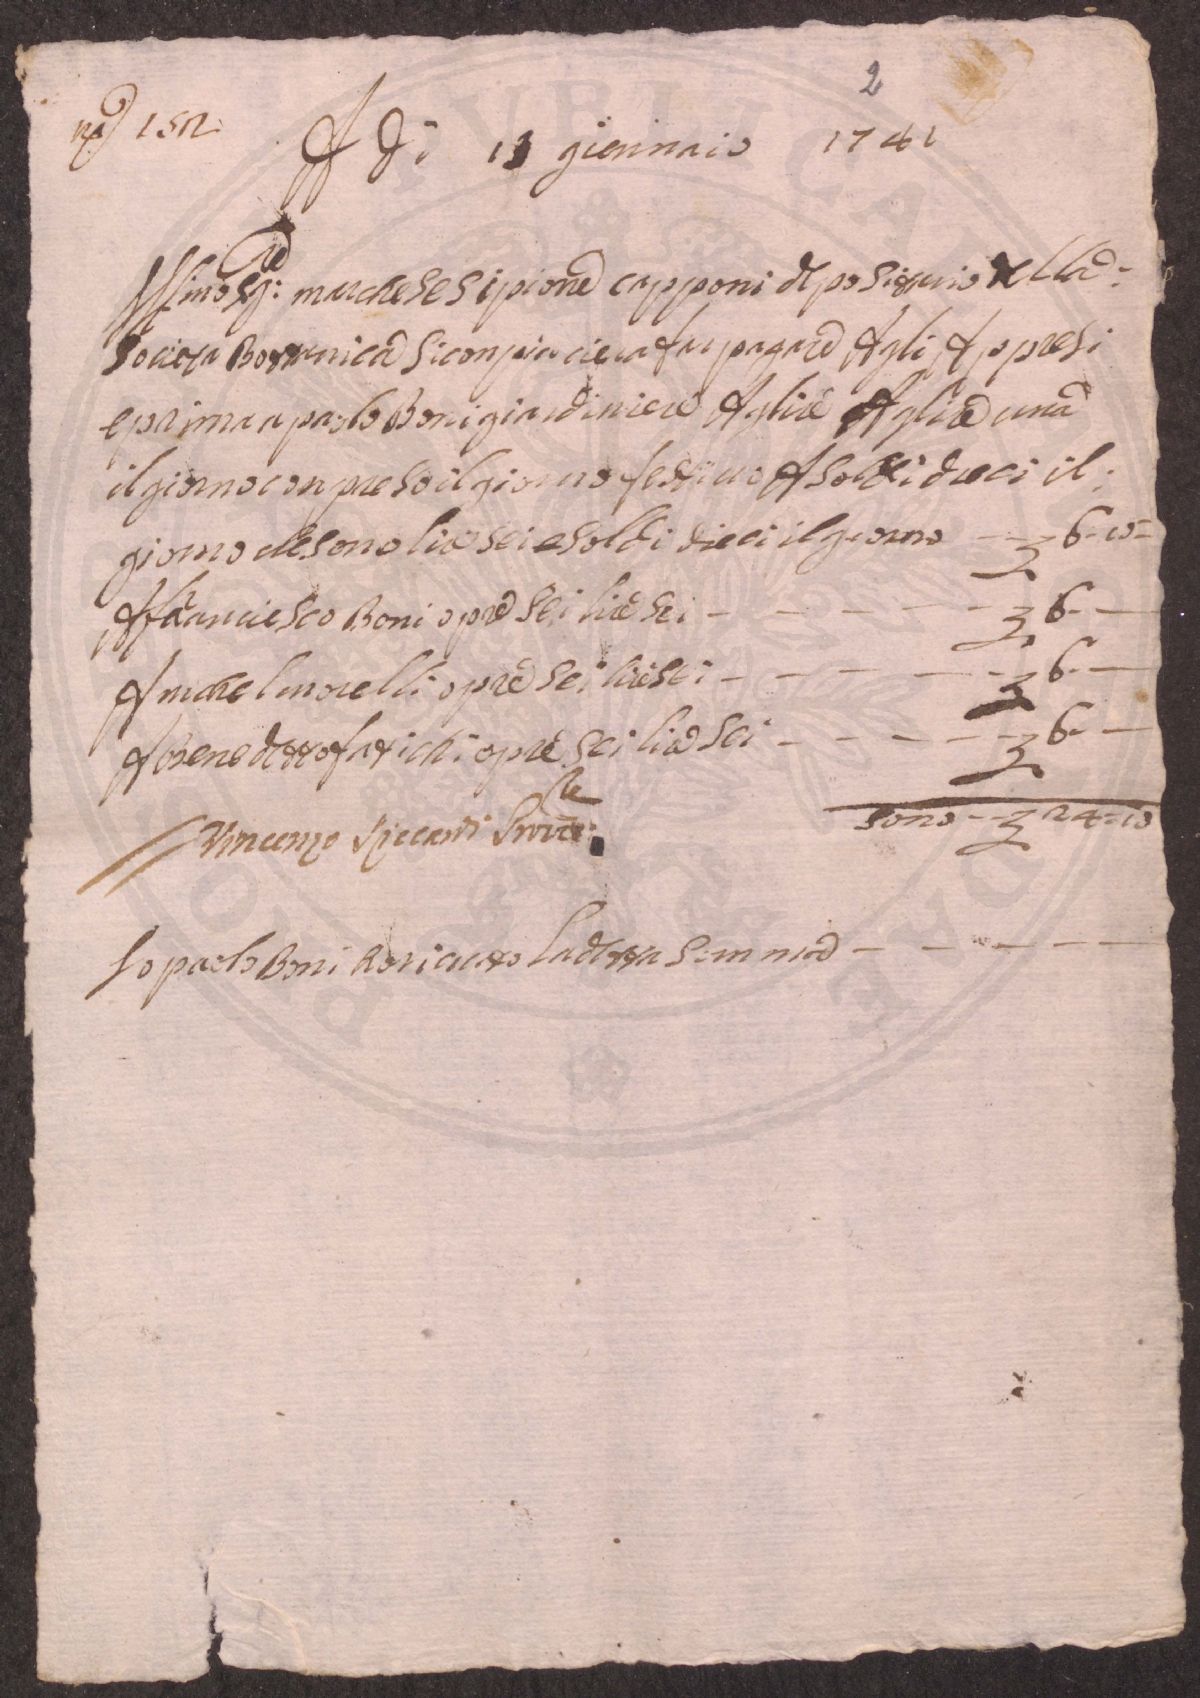 2
n.o 152.
A Di 13 giennaio 1741
Ill.mo Sig.re marchese sipione capponi depositario della
Società Bottanica si conpiacierà far pagare Agli Appresi
e prima a paolo Boni giardiniere A lire A lire una
il giorno conpreso il giorno festivo A soldi dieci il
giorno che sono lire sei e soldi dieci il giorno 6-10-
A franciesco Boni opre sei lire sei 6-
A michel morelli opre sei lire sei 6-
A Benedetto fatichi opre sei lire sei 6-
Sono 24-10
Vincenzo
Io paolo Boni ho riceuto la detta somma
PVBLICA